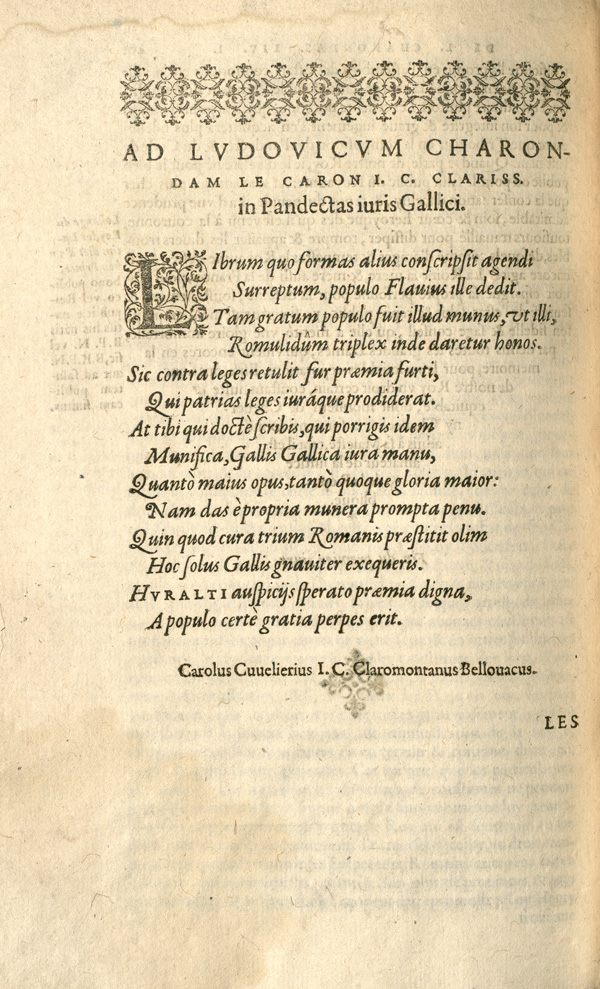 AD LVDOVICVM CHARON-
DAM LE CARON I. C. CLARISS.
in Pandectas iuris Gallici.
LIbrum quo formas alius conſcripſit agendi
Surreptum, populo Flauius ille dedit.
Tam gratum populo fuit illud munus, vt illi,
Romulidûm triplex inde daretur honos.
Sic contra leges retulit fur præmia furti,
Qui patrias leges iuráque prodiderat.
At tibi qui doctè ſcribis, qui porrigis idem
Munifica, Gallis Gallica iura manu,
Quantò maius opus, tantò quoque gloria maior:
Nam das è propria munera prompta penu.
Quin quod cura trium Romanis præſtitit olim
Hoc ſolus Gallis gnauiter exequeris.
HVRALTI auſpicijs ſperato præmia digna,
A populo certè gratia perpes erit.
Carolus Cuuelierius I. C. Claromontanus Bellouacus.
LES